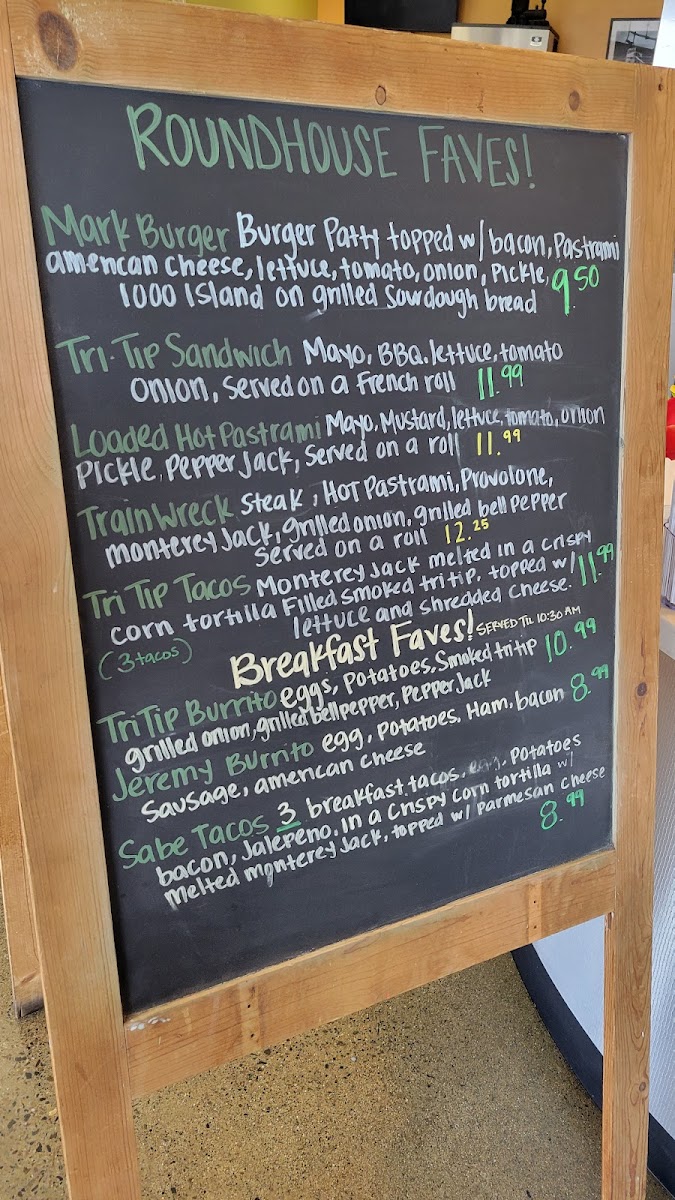 ROUNDHOUSE FAVES!
Mark Burger Burger Patty topped w/ bacon, Pastrami
american cheese, lettuce, tomato, onion, Pickle, 9.50
1000 Island on grilled Sourdough bread
Tri-Tip Sandwich Mayo, BBQ. lettuce, tomato
onion, served on a French roll 11.99
Loaded Hot Pastrami Mayo, Mustard, lettuce, tomato, onion
Pickle, Pepper Jack, served on a roll 11.99
TrainWreck Steak, Hot Pastrami, Provolone,
monterey Jack, grilled onion, grilled bell pepper
served on a roll 12.25
Tri Tip Tacos Monterey Jack melted in a crispy
corn tortilla Filled smoked tri tip. topped w/ 11.99
lettuce and shredded cheese.
(3 tacos)
Breakfast Faves! SERVED TIL 10:30 AM
Tri Tip Burrito eggs, Potatoes, Smoked tri tip 10.99
grilled onion, grilled bell pepper, Pepper Jack
Jeremy Burrito egg, potatoes. Ham, bacon 8.99
Sausage, american cheese
Sabe Tacos 3 breakfast tacos. egg, Potatoes
bacon, Jalepeno. in a crispy corn tortilla w/
melted monterey Jack, topped w/ Parmesan cheese
8.99